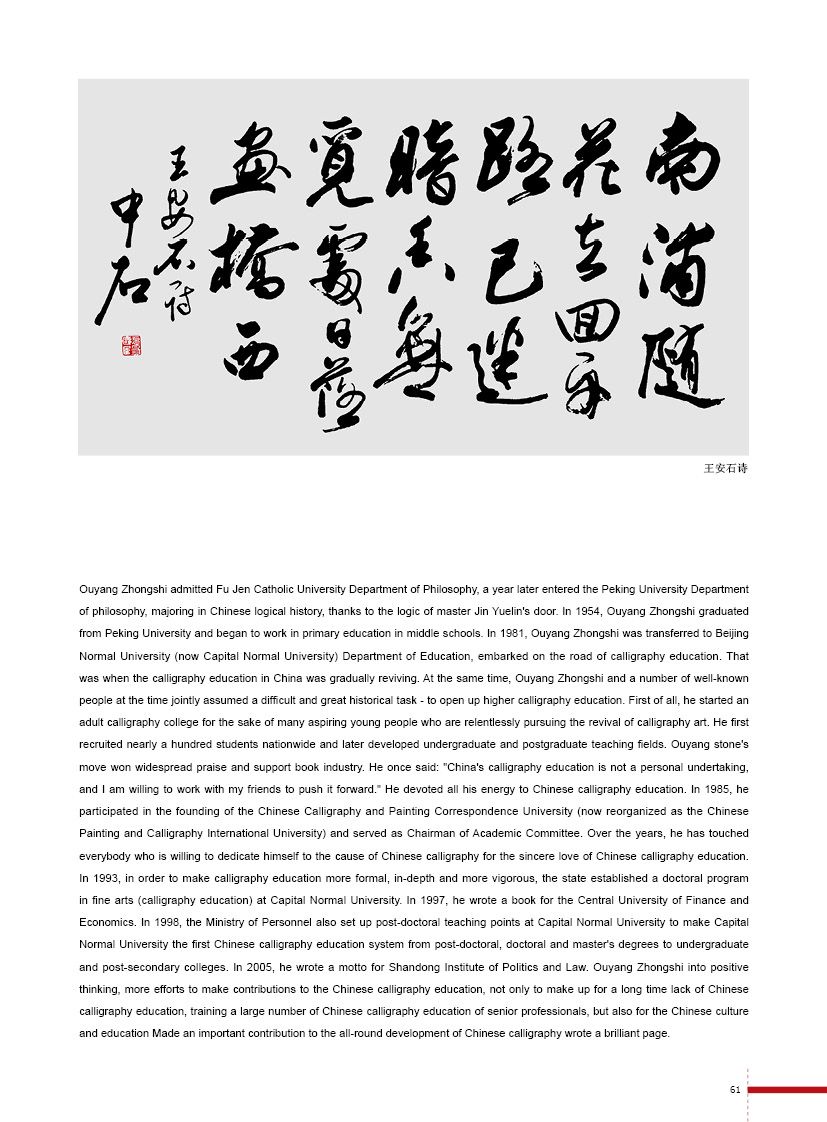 南浦隨
花去回舟
路已迷
暗香無
覓處日落
畫橋西
王安石詩
中石
王安石诗
Ouyang Zhongshi admitted Fu Jen Catholic University Department of Philosophy, a year later entered the Peking University Department
of philosophy, majoring in Chinese logical history, thanks to the logic of master Jin Yuelin's door. In 1954, Ouyang Zhongshi graduated
from Peking University and began to work in primary education in middle schools. In 1981, Ouyang Zhongshi was transferred to Beijing
Normal University (now Capital Normal University) Department of Education, embarked on the road of calligraphy education. That
was when the calligraphy education in China was gradually reviving. At the same time, Ouyang Zhongshi and a number of well-known
people at the time jointly assumed a difficult and great historical task - to open up higher calligraphy education. First of all, he started an
adult calligraphy college for the sake of many aspiring young people who are relentlessly pursuing the revival of calligraphy art. He first
recruited nearly a hundred students nationwide and later developed undergraduate and postgraduate teaching fields. Ouyang stone's
move won widespread praise and support book industry. He once said: "China's calligraphy education is not a personal undertaking,
and I am willing to work with my friends to push it forward." He devoted all his energy to Chinese calligraphy education. In 1985, he
participated in the founding of the Chinese Calligraphy and Painting Correspondence University (now reorganized as the Chinese
Painting and Calligraphy International University) and served as Chairman of Academic Committee. Over the years, he has touched
everybody who is willing to dedicate himself to the cause of Chinese calligraphy for the sincere love of Chinese calligraphy education.
In 1993, in order to make calligraphy education more formal, in-depth and more vigorous, the state established a doctoral program
in fine arts (calligraphy education) at Capital Normal University. In 1997, he wrote a book for the Central University of Finance and
Economics. In 1998, the Ministry of Personnel also set up post-doctoral teaching points at Capital Normal University to make Capital
Normal University the first Chinese calligraphy education system from post-doctoral, doctoral and master's degrees to undergraduate
and post-secondary colleges. In 2005, he wrote a motto for Shandong Institute of Politics and Law. Ouyang Zhongshi into positive
thinking, more efforts to make contributions to the Chinese calligraphy education, not only to make up for a long time lack of Chinese
calligraphy education, training a large number of Chinese calligraphy education of senior professionals, but also for the Chinese culture
and education Made an important contribution to the all-round development of Chinese calligraphy wrote a brilliant page.
61